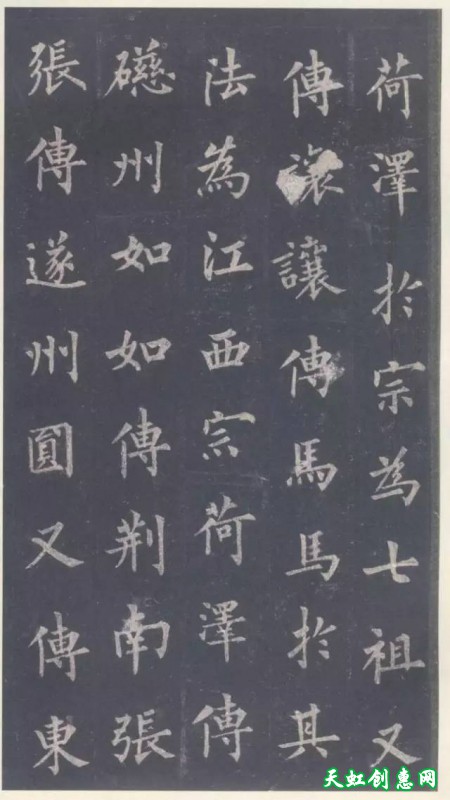 荷澤於宗為七祖又
傳讓讓傳馬馬於其
法為江西宗荷澤傳
礠州如如傳荆南張
張傳遂州圓又傳東
天虹创惠网